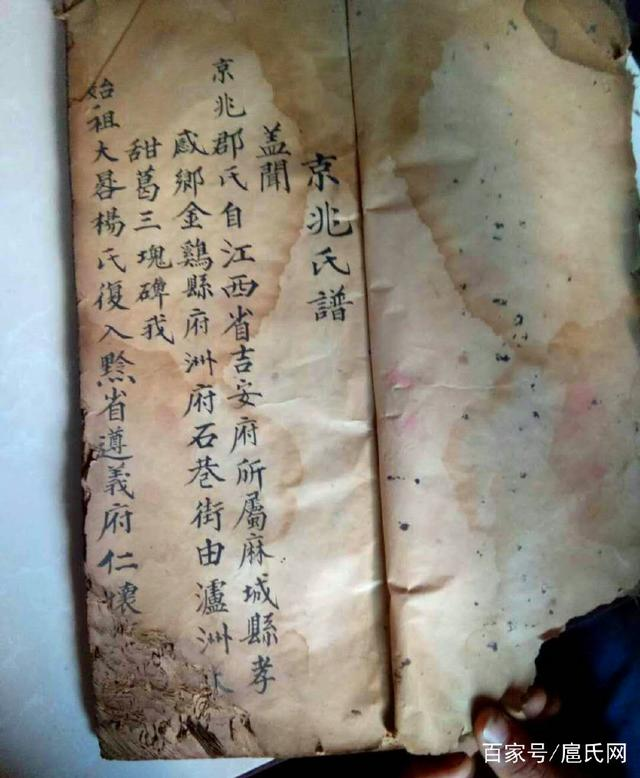 京兆氏譜
盖聞
京兆郡氏自江西省吉安府所屬麻城縣孝
感鄉金鷄縣府洲府石巷街由瀘洲
甜葛三塊碑我
始祖大晷楊氏復入黔省遵義府仁懐
百家号/扈氏网